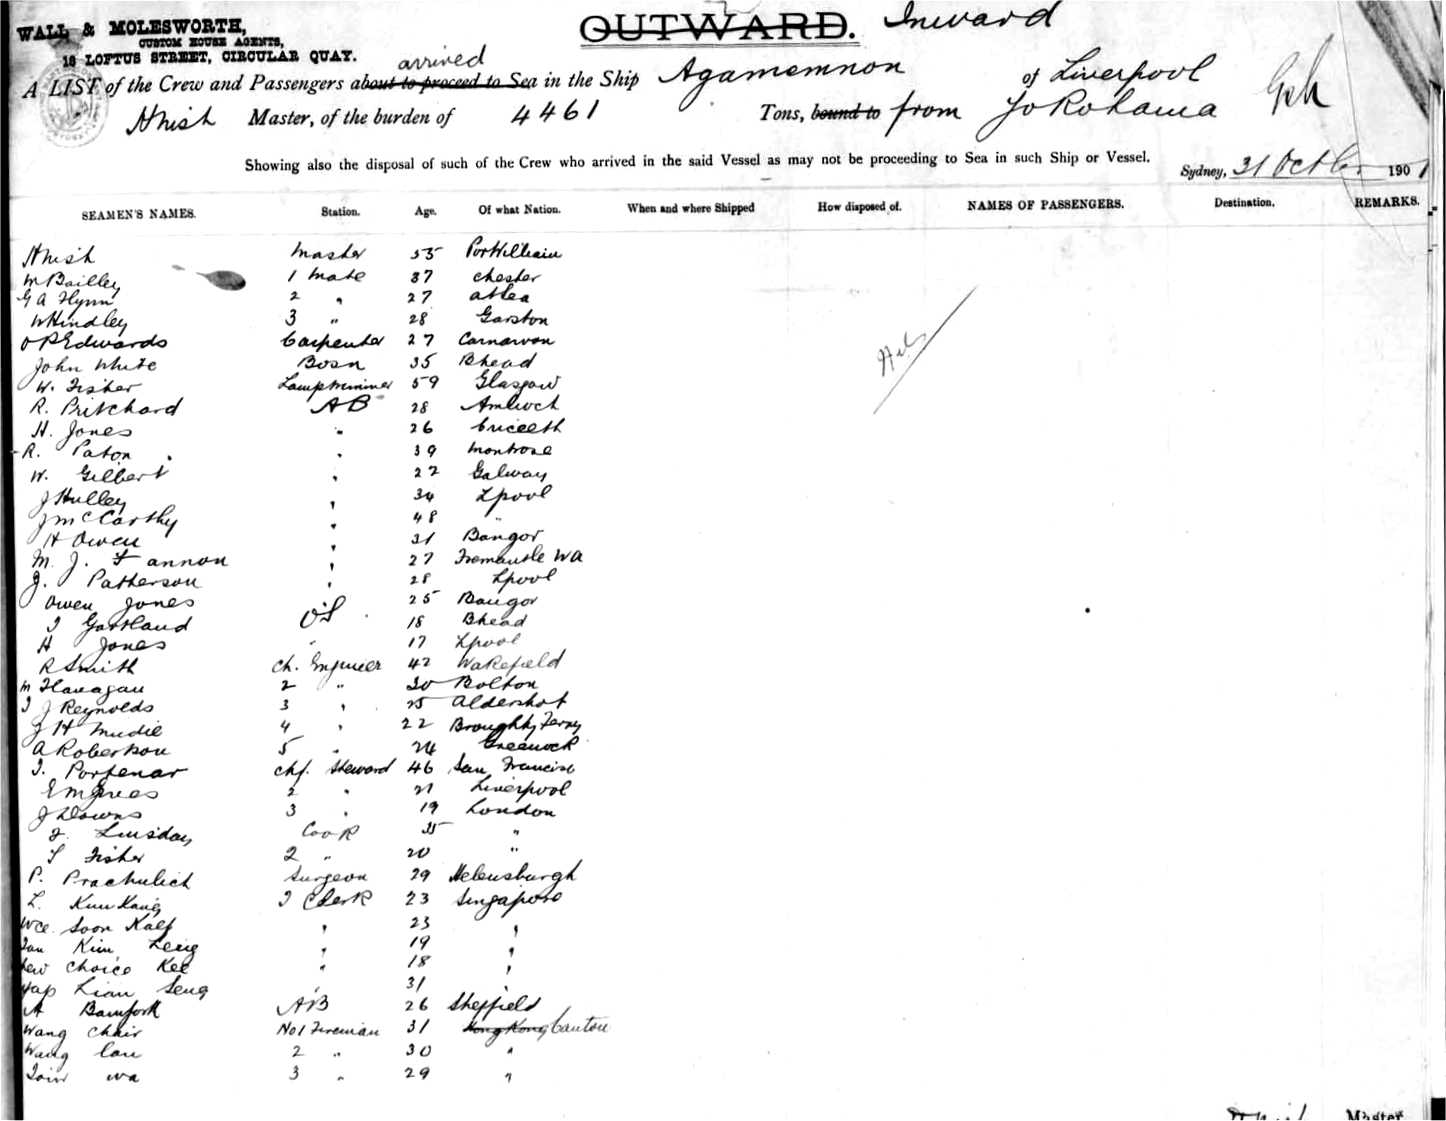 WALL & MOLESWORTH,
CUSTOM HOUSE AGENTS,
18 LOFTUS STREET, CIRCULAR QUAY.
OUTWARD. Inward
arrived
A LIST of the Crew and Passengers about to proceed to Sea in the Ship Agamemnon of Liverpool
HNish Master, of the burden of 4461 Tons, bound to from Yokohama
Showing also the disposal of such of the Crew who arrived in the said Vessel as may not be proceeding to Sea in such Ship or Vessel.
Sydney, 31 October 1901
SEAMEN'S NAMES. Station. Age. Of what Nation. When and where Shipped How disposed of. NAMES OF PASSENGERS. Destination. REMARKS.
HNish Master 55 PortWilliam
M Bailley 1 Mate 37 Chester
G A Flynn 2 " 27
W Hindley 3 " 28 Garston
O P Edwards Carpenter 27 Carnarvon
John White Bosn 35 Bhead
W. Fisher Lamptrimmer 59 Glasgow
R. Pritchard AB 28 Amlwch
H. Jones " 26 Cricceth
R. Paton " 39 Montrose
W. Gilbert " 22 Galway
J Hulley " 34 Lpool
J McCarthy " 48 "
H Owen " 31 Bangor
M. J. Fannon " 27 Fremantle WA
J. Patterson " 28 Lpool
Owen Jones 25 Bangor
J Gartland OS 18 Bhead
H Jones " 17 Lpool
R Smith Ch. Engineer 42 Wakefield
M Flanagan 2 " 30 Bolton
J J Reynolds 3 " 25 Aldershot
J H Mudie 4 " 22 Broughty Ferry
A Robertson 5 " 24 Greenock
J. Portenar Chf. Steward 46 San Francisc
E McGrees 2 " 21 Liverpool
J Downs 3 " 19 London
J. Linsday Cook 35 "
T Fisher 2 " 20 "
P. Prachulich Surgeon 29 Helensburgh
L. Kum Kang I Clerk 23 Singapore
Wee Soon Kalf " 23 "
Tan Kim Leng " 19 "
Lew Choice Kee " 18 "
Yap Lian Seng " 31 "
A Bamfork AB 26 Sheffield
Wang Chair No1 Fireman 31 Hong Kong Canton
Wang Lau 2 " 30 "
wa 3 " 29 "
Master